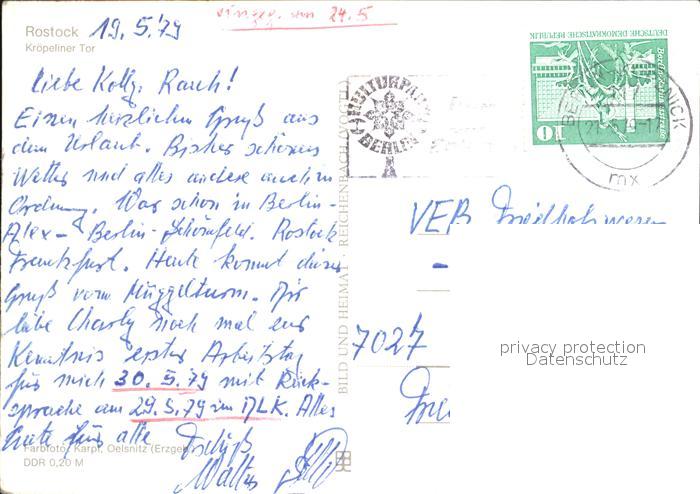 Rostock
Kröpeliner Tor
19.5.79
eingeg. am 24.5
Liebe Kollg. Rauch!
Einen herzlichen Gruß aus
dem Urlaub. Bisher schönes
Wetter und alles andere auch in
Ordnung. War schon in Berlin-
Alex- Berlin-Schönefeld. Rostock
Frankfurt. Heute kommt dieser
Gruß vom Müggelturm. Für
liebe Charly noch mal zur
Kenntnis erster Arbeitstag
für mich 30.5.79 mit Rück-
sprache am 29.5.79 im DLK. Alles
Gute für alle Tschüß
Walter
Farbfoto: Karpf, Oelsnitz (Erzgeb.)
DDR 0,20 M
BILD UND HEIMAT · REICHENBACH (VOGTL)
KULTURPARK
BERLIN
DEUTSCHE DEMOKRATISCHE REPUBLIK
10
VEB
7027
privacy protection
Datenschutz